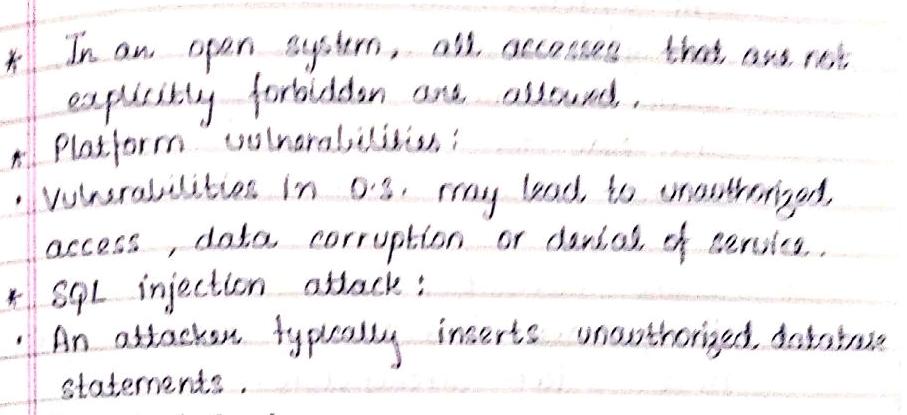 * In an open system, all accesses that are not
explicitly forbidden are allowed.
* Platform vulnerabilities :
• Vulnerabilities in O.S. may lead to unauthorized
access , data corruption or denial of service.
* SQL injection attack :
• An attacker typically inserts unauthorized database
statements .